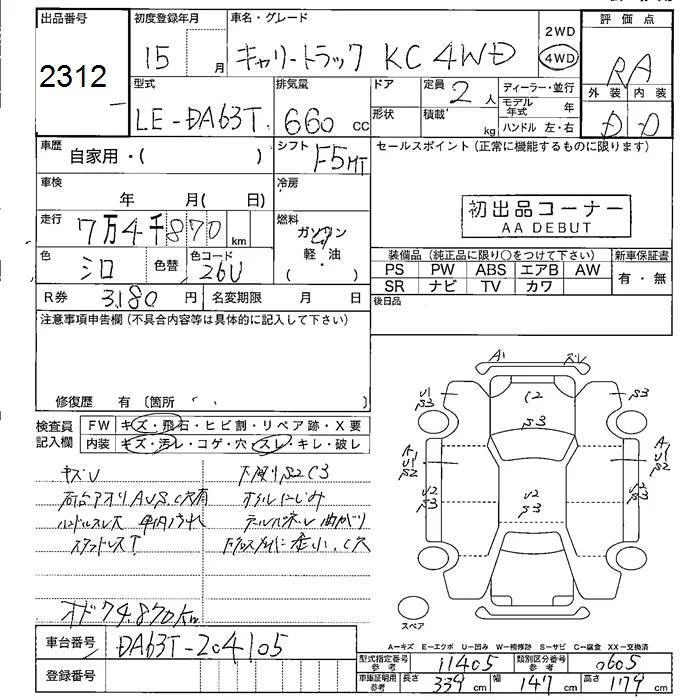 出品番号 初度登録年月 車名・グレード 2WD 評価点
2312 15 月 キャリートラック KC 4WD 4WD RA
型式 排気量 ドア 定員 2 人 ディーラー・並行 外装 内装
LE-DA63T 660 cc 形状 積載 kg モデル年式 年 D D
ハンドル 左・右
車歴 自家用・( ) シフト F5MT セールスポイント(正常に機能するものに限ります)
車検 年 月( 日) 冷房
初出品コーナー
AA DEBUT
走行 7万4千870 km 燃料 ガソリン
軽・油
( )
色 シロ 色替 色コード 26U
装備品(純正品に限り○をつけて下さい) 新車保証書
PS PW ABS エアB AW 有・無
SR ナビ TV カワ
R券 3,180 円 名変期限 月 日 後日品
注意事項申告欄(不具合内容等は具体的に記入して下さい)
修復歴 有(箇所 )
検査員記入欄 FW キズ・飛石・ヒビ割・リペア跡・X要
内装 キズ・汚レ・コゲ・穴・スレ・キレ・破レ
キズU 下廻りS2C3
荷台アオリAUS,C穴有 オイルにじみ
ハンドルスレ大
スタッドレスT
オド74,870km
A1 スレ
U1 S3 C2 S3 S3
A1 U1 S2 A1 U1 S2
U2 S3 U2 S3 U2 S3
スペア
A-キズ E-エクボ U-凹み W-補修跡 S-サビ C-腐食 XX-交換済
車台番号 DA63T-204105 型式指定番号 参考 11405 類別区分番号 参考 0605
登録番号 車庫証明用 参考 長さ 339 cm 幅 147 cm 高さ 179 cm